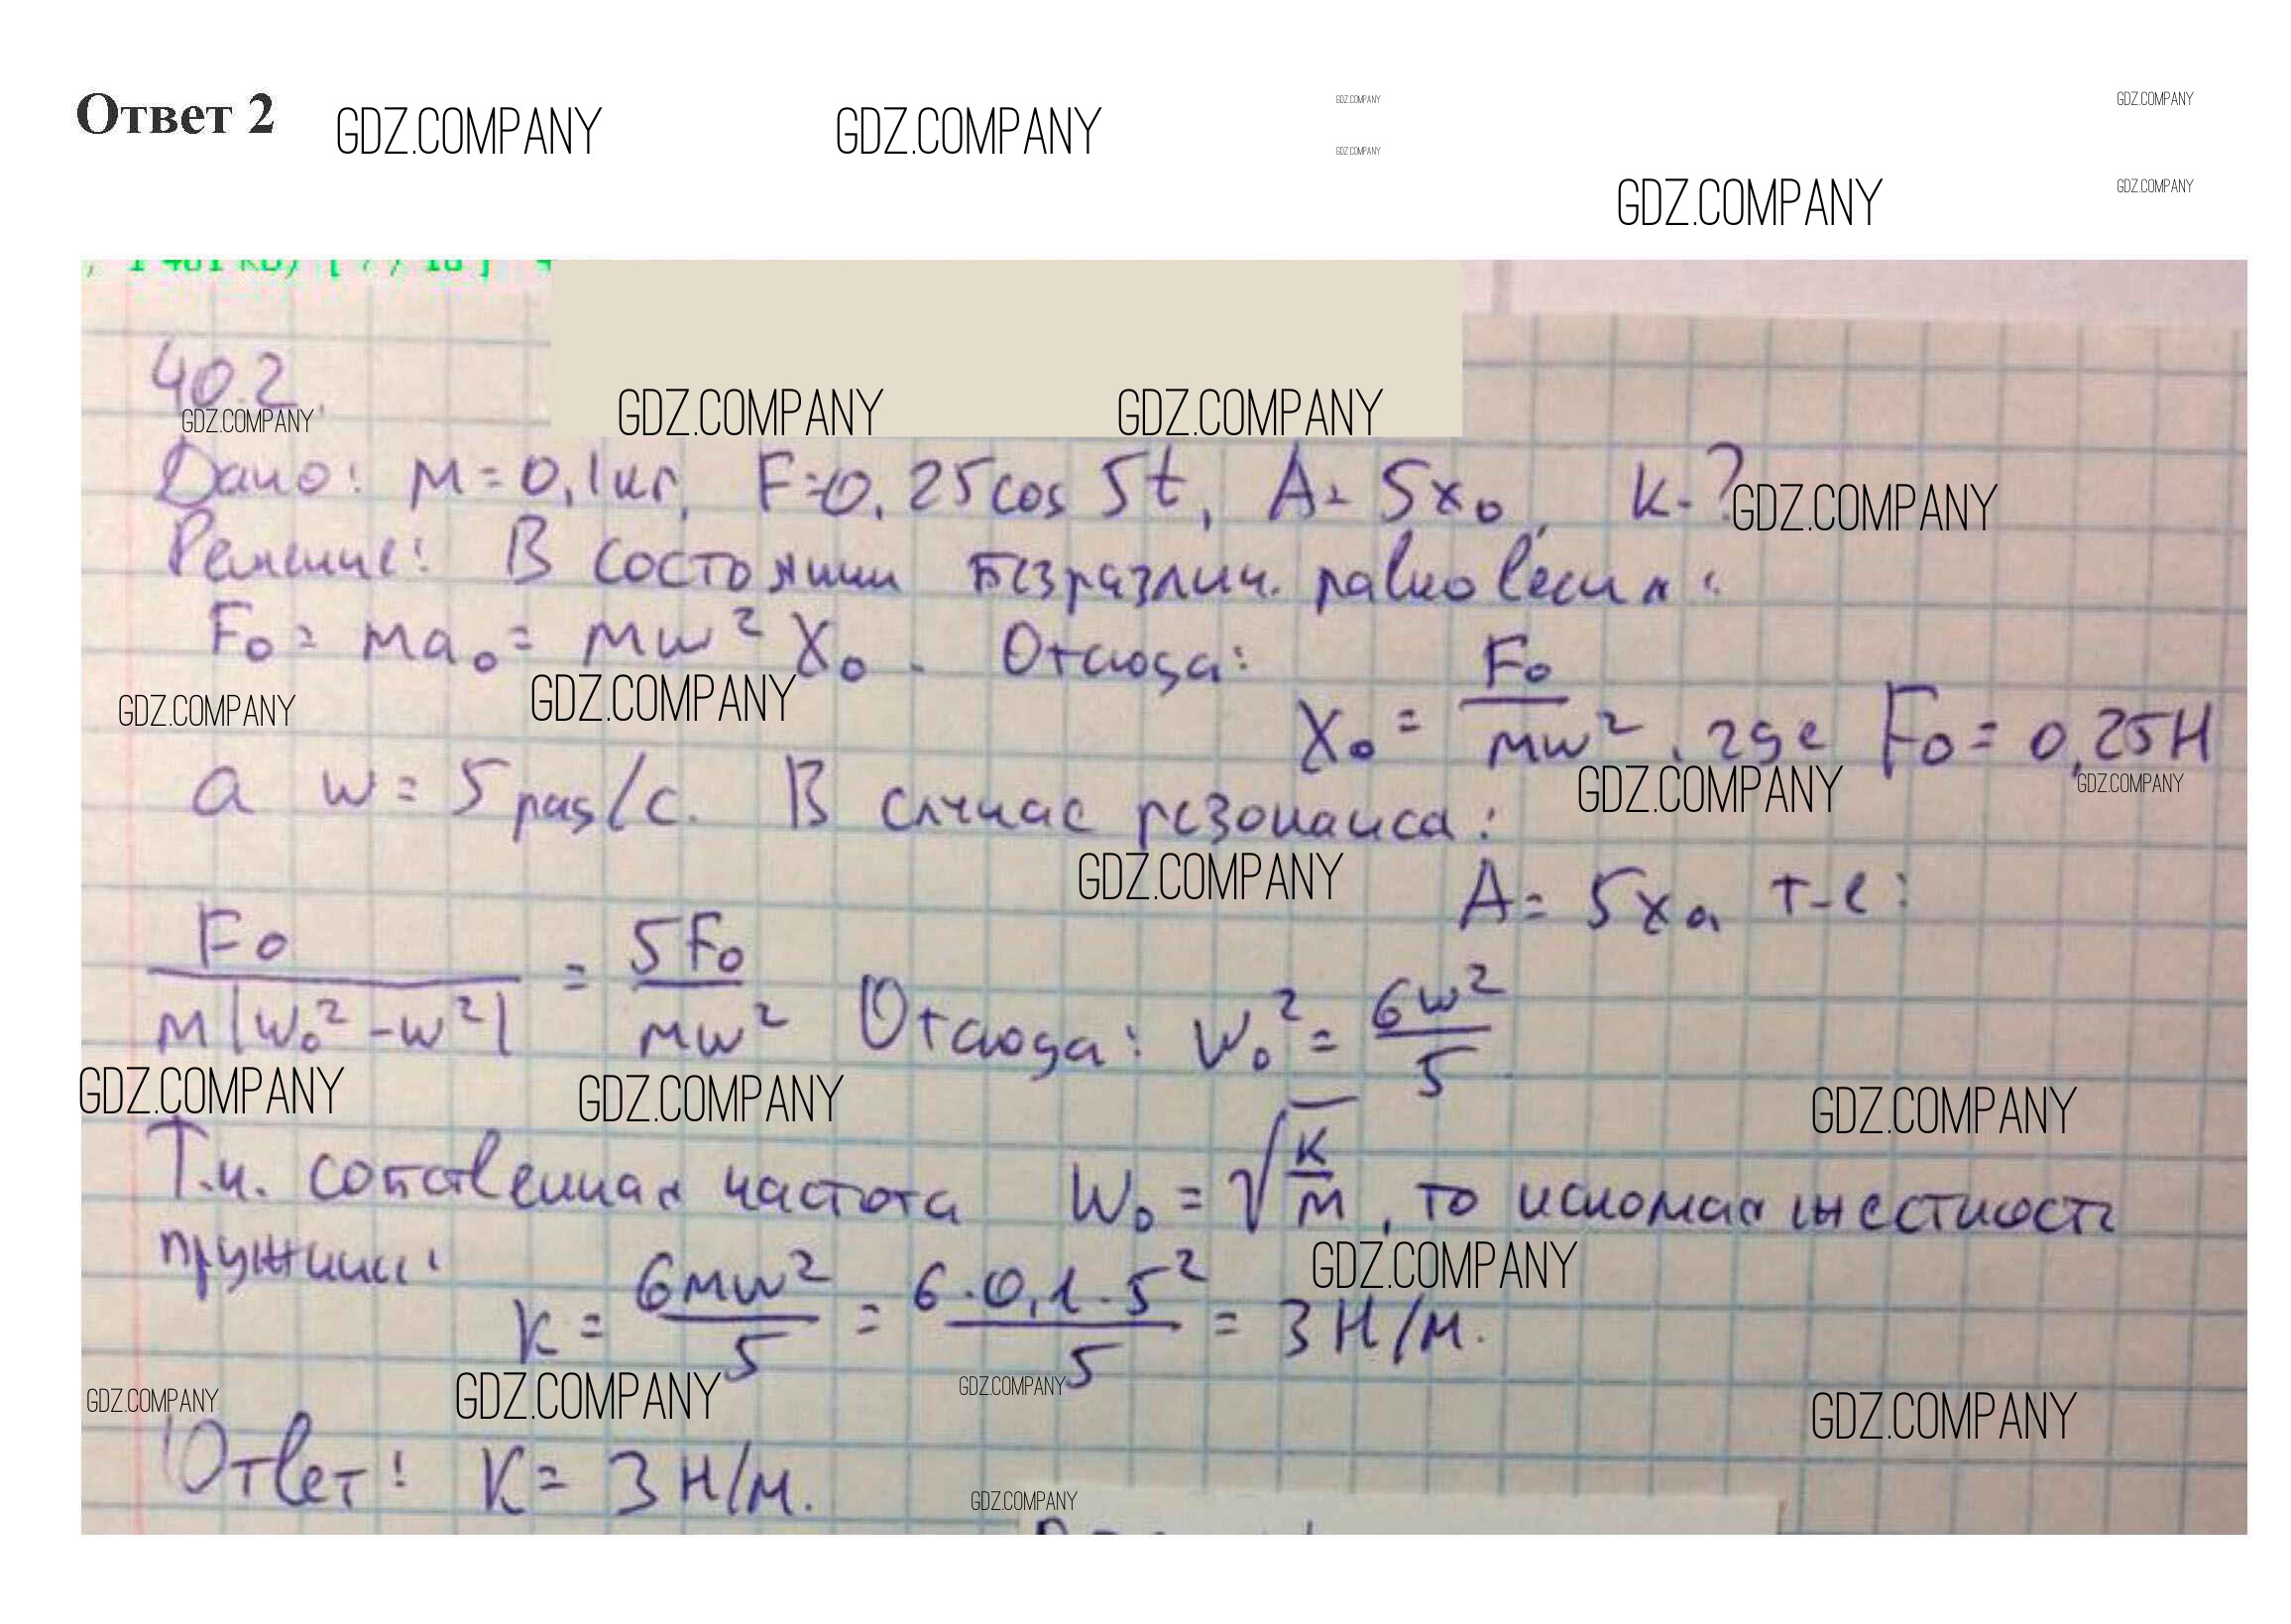 Ответ 2
GDZ.COMPANY GDZ.COMPANY GDZ.COMPANY GDZ.COMPANY
GDZ.COMPANY
GDZ.COMPANY GDZ.COMPANY
40.2
GDZ.COMPANY GDZ.COMPANY GDZ.COMPANY
Дано: m = 0,1 кг, F = 0,25 cos 5t, A = 5x₀, k - ?
GDZ.COMPANY
Решение: В состоянии безразлич. равновесия:
F₀ = ma₀ = mw² X₀. Отсюда:
GDZ.COMPANY GDZ.COMPANY
X₀ = F₀/mw², где F₀ = 0,25Н
GDZ.COMPANY GDZ.COMPANY
а w = 5 рад/с. В случае резонанса:
GDZ.COMPANY
A = 5x₀, т-е:
F₀/m|w₀² - w²| = 5F₀/mw² Отсюда: w₀² = 6w²/5
GDZ.COMPANY GDZ.COMPANY GDZ.COMPANY
Т.к. собственная частота w₀ = √k/m, то искомая жесткость
пружины:
GDZ.COMPANY
k = 6mw²/5 = 6·0,1·5²/5 = 3 Н/м.
GDZ.COMPANY GDZ.COMPANY GDZ.COMPANY GDZ.COMPANY
Ответ: K = 3 Н/м.
GDZ.COMPANY